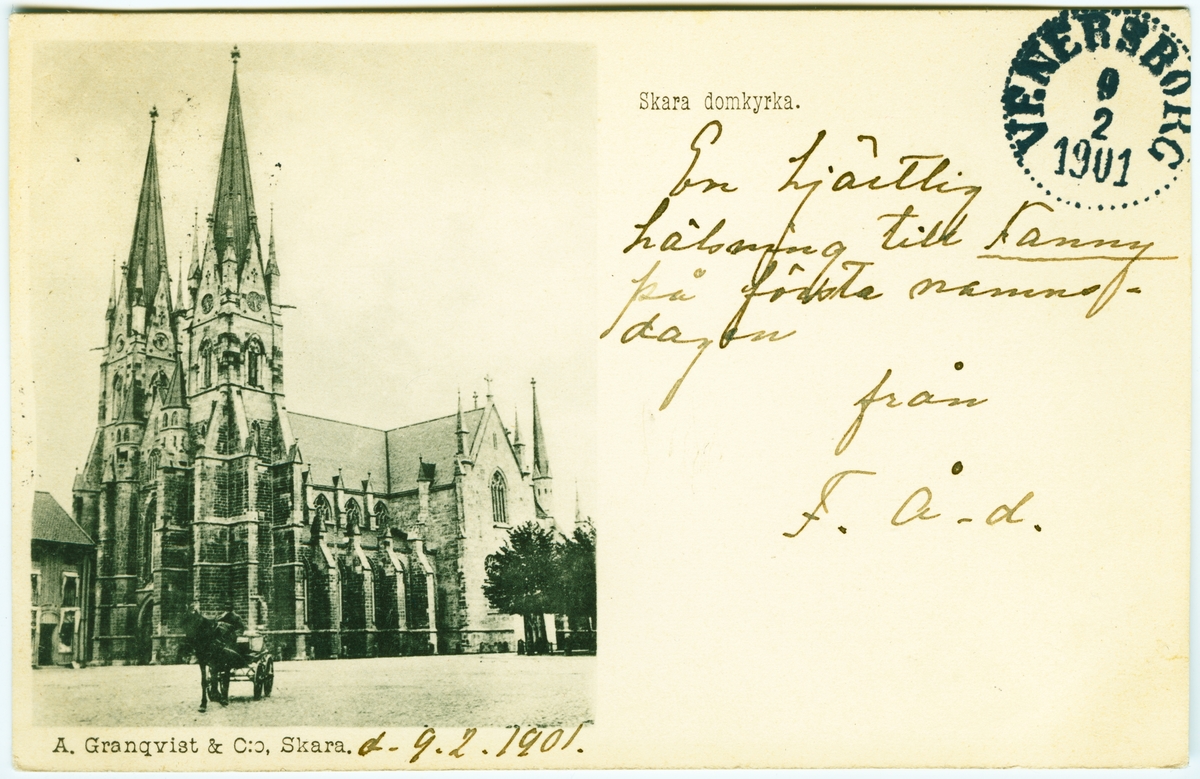 VENERSBORG
9
2
1901
Skara domkyrka.
En hjärtlig
hälsning till Fanny
på första namns-
dagen
från
F. Å-d.
A. Granqvist & C:o, Skara. d. 9.2.1901.